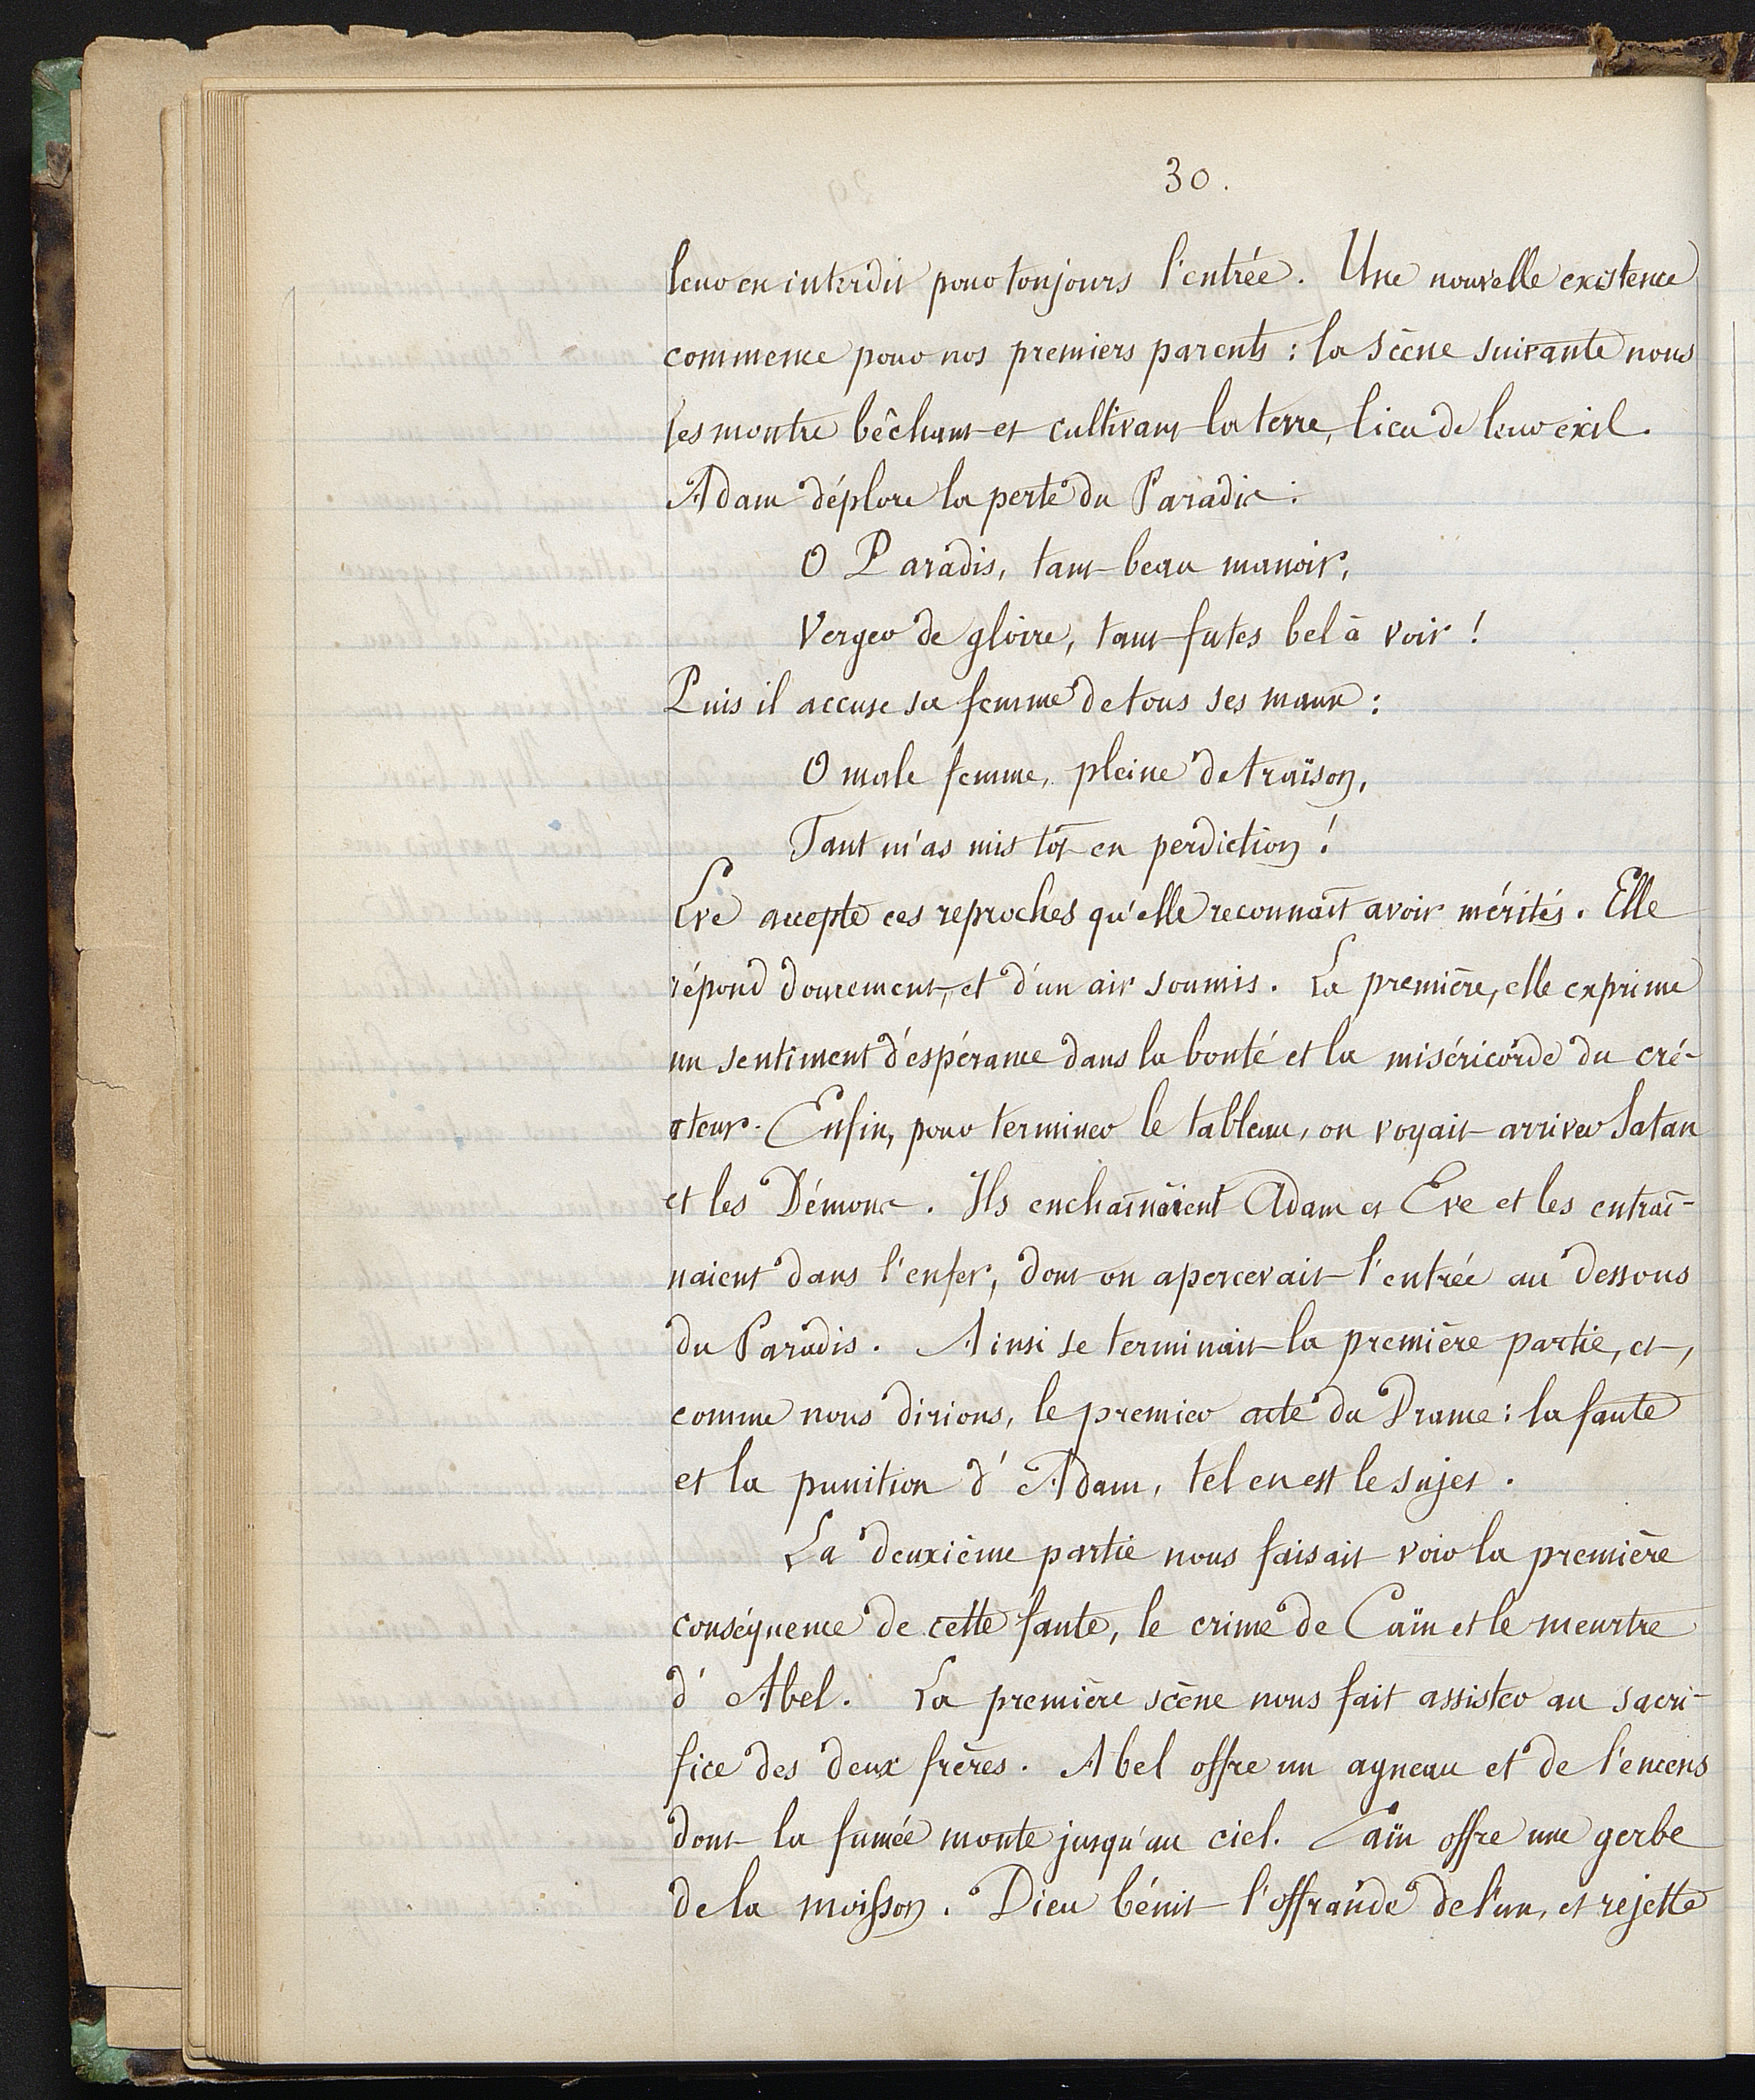 30.
leur en interdit pour toujours l'entrée. Une nouvelle existence
commence pour nos premiers parents : la scène suivante nous
les montre bêchant et cultivant la terre, lieu de leur exil.
Adam déplore la perte du Paradis :
O Paradis, tant beau manoir,
Verger de gloire, tant futes bel à voir !
Puis il accuse sa femme de tous ses maux :
O male femme, pleine de traïson,
Tant m'as mis tôt en perdiction !
Eve accepte ces reproches qu'elle reconnaît avoir mérités. Elle
répond doucement, et d'un air soumis. La première, elle exprime
un sentiment d'espérance dans la bonté et la miséricorde du cré-
ateur. Enfin, pour terminer le tableau, on voyait arriver Satan
et les Démons. Ils enchaînaient Adam et Eve et les entraî-
naient dans l'enfer, dont on apercevait l'entrée au dessous
du Paradis. Ainsi se terminait la première partie, et,
comme nous dirions, le premier acte du Drame : la faute
et la punition d'Adam, tel en est le sujet.
La deuxième partie nous faisait voir la première
conséquence de cette faute, le crime de Caïn et le meurtre
d'Abel. La première scène nous fait assister au sacri-
fice des deux frères. Abel offre un agneau et de l'encens
dont la fumée monte jusqu'au ciel. Caïn offre une gerbe
de la moisson. Dieu bénit l'offrande de l'un, et rejette